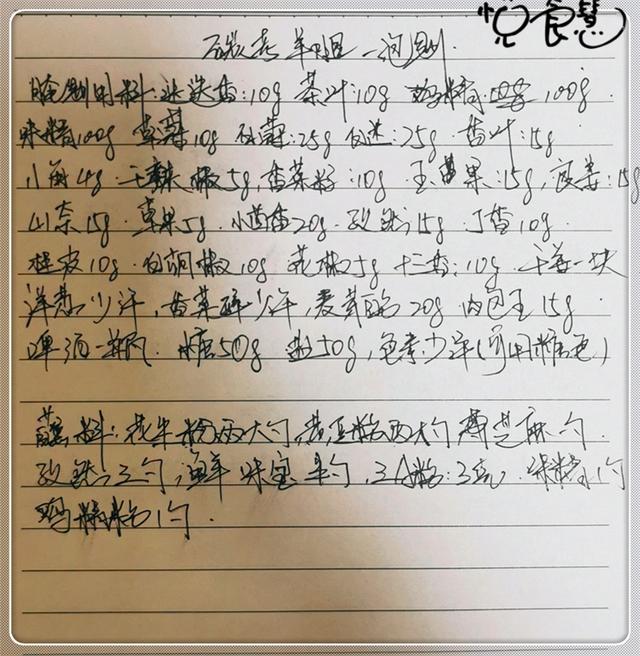 悦食慧
炭烤羊腿一泡制
腌制材料:迷迭香:10g 茶叶:10g 鸡精 100g
味精100g 草蔻10g 白蔻:25g 白芷:25g 香叶:15g
八角4g 干辣椒5g,香菜籽:10g 玉果:15g,良姜:15g
山奈15g 草果5g 小茴香20g 孜然15g 丁香10g
桂皮10g 白胡椒10g 花椒5g 十三香:10g 干姜一块
洋葱少许,香菜碎少许,麦芽酚20g 肉包王15g
啤酒一瓶 糖50g 盐50g,色素少许(可用糖色)
蘸料:花生粉两大勺,黄豆粉两大勺 芝麻 勺
孜然三勺,鲜味宝半勺, 粉:3克 味精1勺
鸡精粉1勺